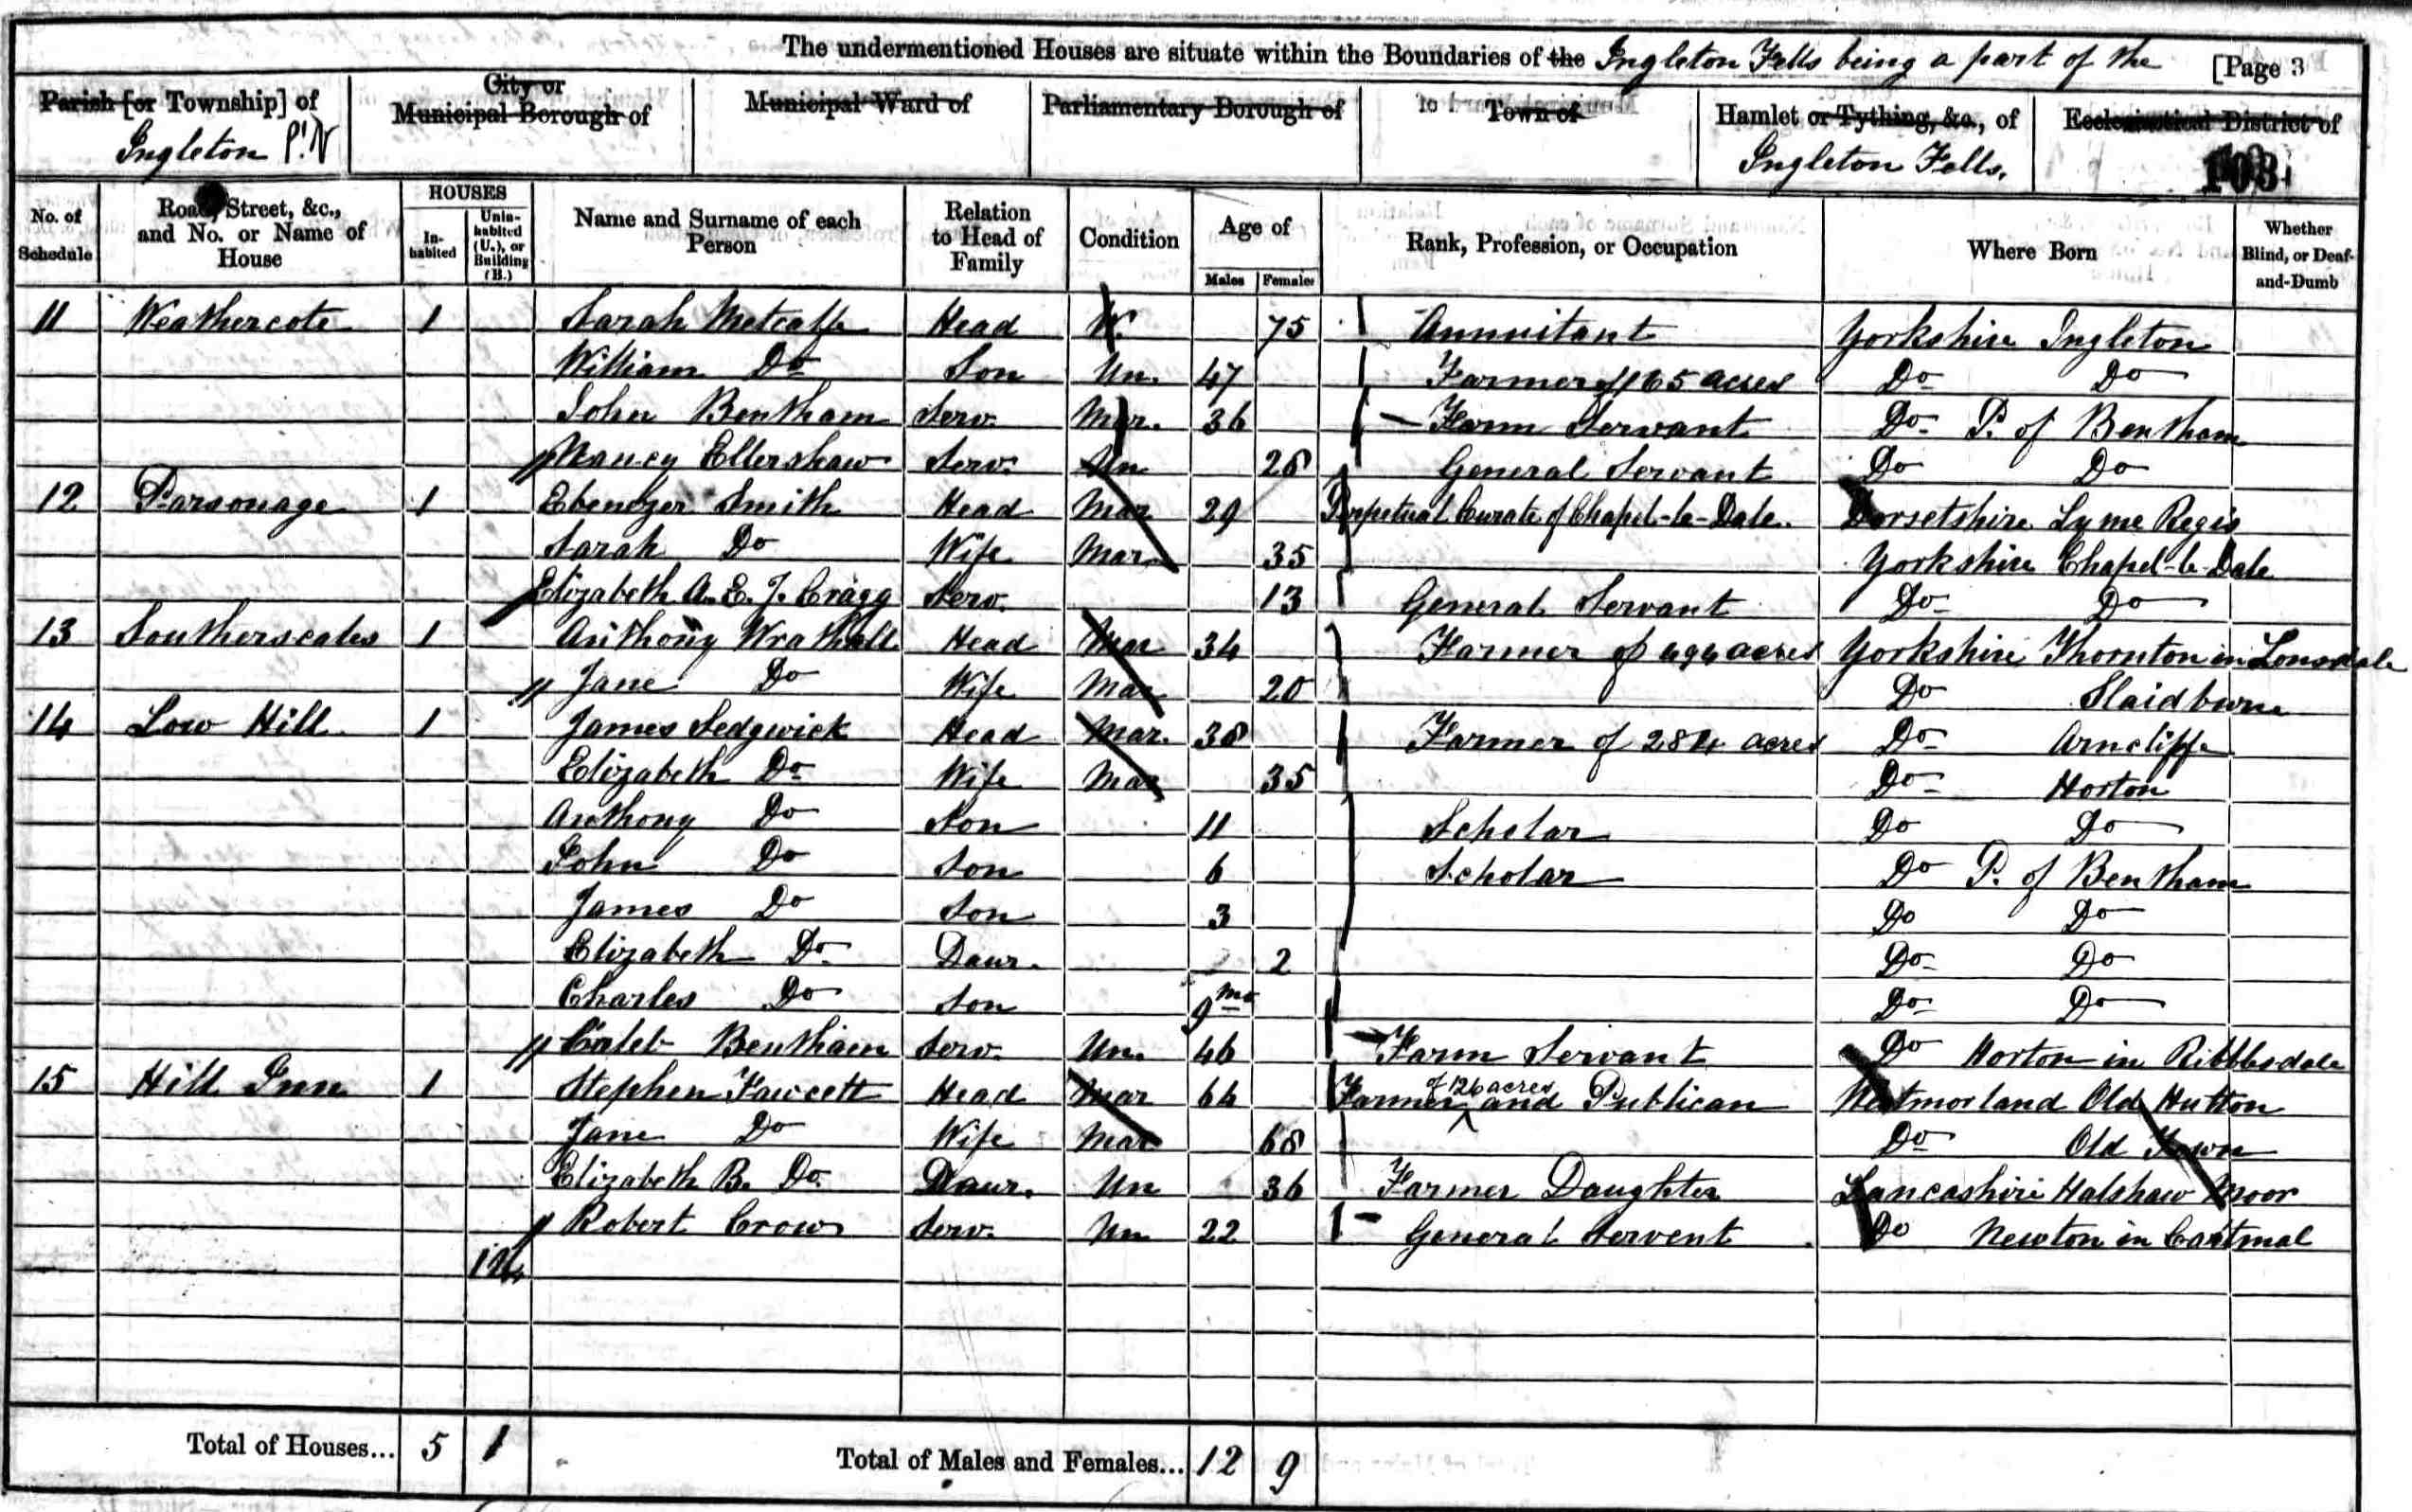 The undermentioned Houses are situate within the Boundaries of the Ingleton Fells being a part of the [Page 3
Parish [or Township] of City or Municipal Borough of Municipal Ward of Parliamentary Borough of Town of Hamlet or Tything, &c., of Ecclesiastical District of
Ingleton Ingleton Fells.
103
No. of Schedule Road, Street, &c., and No. or Name of House HOUSES Inhabited Uninhabited (U.), or Building (B.) Name and Surname of each Person Relation to Head of Family Condition Age of Males Females Rank, Profession, or Occupation Where Born Whether Blind, or Deaf-and-Dumb
11 Weathercote 1 Sarah Metcalfe Head W. 75 Annuitant Yorkshire Ingleton
William Do Son Un. 47 Farmer of 165 acres Do Do
John Bentham Serv. Mar. 36 Farm Servant Do P. of Bentham
Nancy Ellershaw Serv. Un 28 General Servant Do Do
12 Parsonage 1 Ebenezer Smith Head Mar 29 Perpetual Curate of Chapel-le-Dale. Dorsetshire Lyme Regis
Sarah Do Wife Mar 35 Yorkshire Chapel-le-Dale
Elizabeth A. E. J. Cragg Serv. 13 General Servant Do Do
13 Southerscales 1 Anthony Wrathall Head Mar 34 Farmer of 494 acres Yorkshire Thornton in Lonsdale
Jane Do Wife Mar 20 Do Slaidburn
14 Low Hill 1 James Sedgwick Head Mar. 38 Farmer of 284 acres Do Arncliffe
Elizabeth Do Wife Mar 35 Do Horton
Anthony Do Son 11 Scholar Do Do
John Do Son 6 Scholar Do P. of Bentham
James Do Son 3 Do Do
Elizabeth Do Daur. 2 Do Do
Charles Do Son 9 mo Do Do
Caleb Bentham Serv. Un. 46 Farm Servant Do Horton in Ribblesdale
15 Hill Inn 1 Stephen Fawcett Head Mar 64 Farmer of 126 acres and Publican Westmorland Old Hutton
Jane Do Wife Mar 68 Do Old Town
Elizabeth B. Do Daur. Un 36 Farmer Daughter Lancashire Halshaw Moor
Robert Crow Serv. Un 22 General Servent Do Newton in Cartmal
Total of Houses... 5 1 Total of Males and Females... 12 9